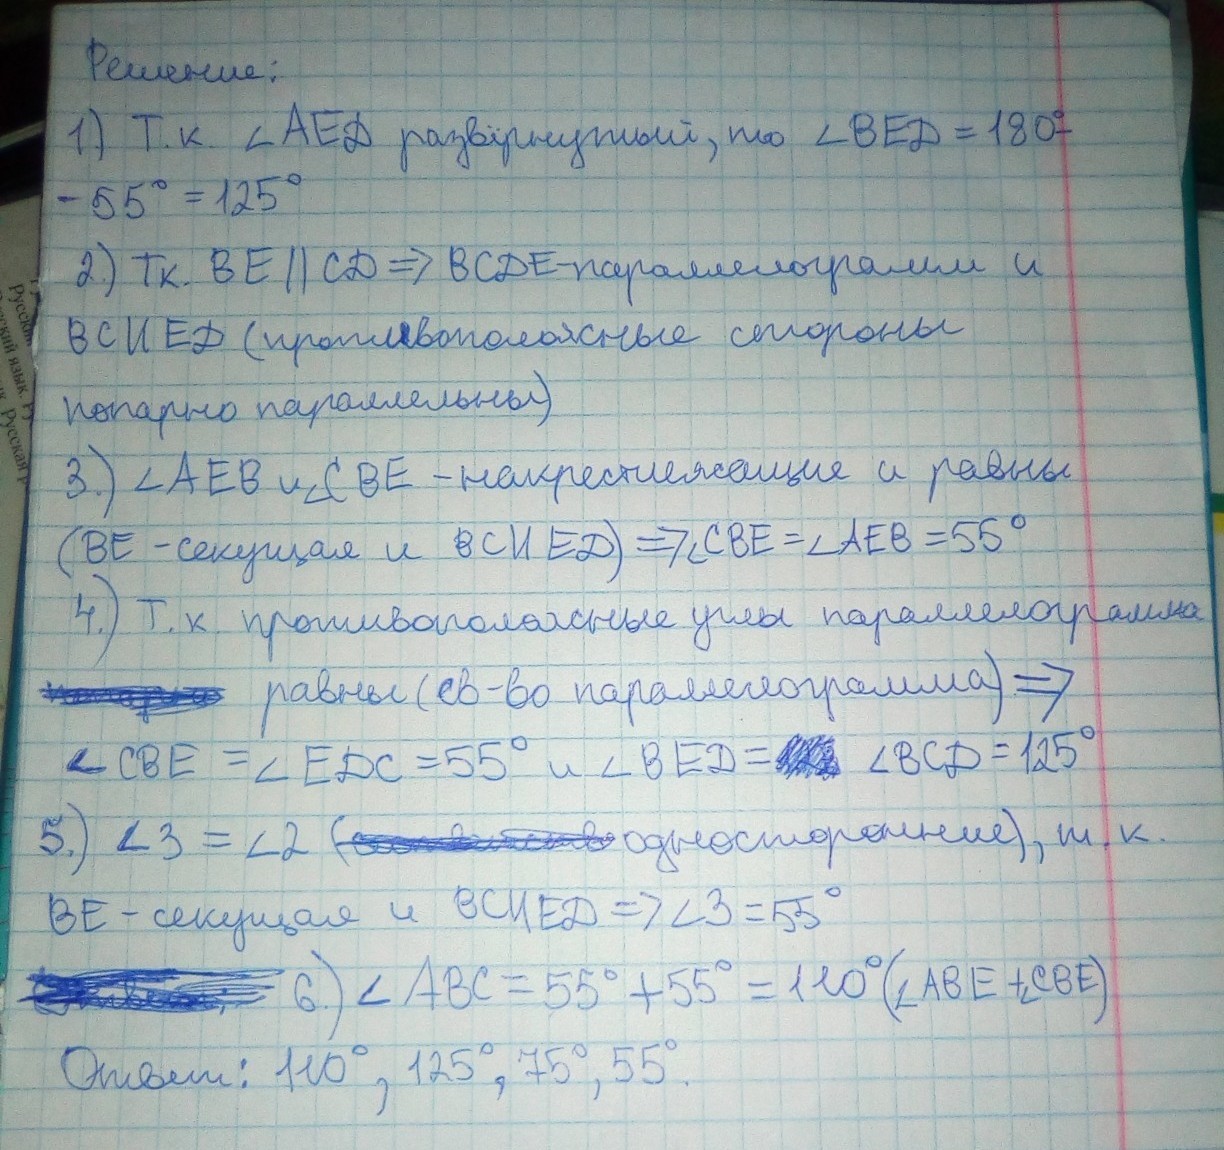 Решение:
1.) Т.к. ∠AED развёрнутый, то ∠BED = 180°-
- 55° = 125°
2.) Тк. BE || CD => BCDE-параллелограмм и
BC || ED (противоположные стороны
попарно параллельны)
3.) ∠AEB и ∠CBE - накрестлежащие и равны
(BE - секущая и BC || ED) => ∠CBE = ∠AEB = 55°
4.) Т.к. противоположные углы параллелограмма
равны (св-во параллелограмма) =>
∠CBE = ∠EDC = 55° и ∠BED = ∠BCD = 125°
5.) ∠3 = ∠2 (односторонние), т.к.
BE - секущая и BC || ED => ∠3 = 55°
6.) ∠ABC = 55° + 55° = 110° (∠ABE + ∠CBE)
Ответ: 110°, 125°, 75°, 55°.
Русский язык.
Русская